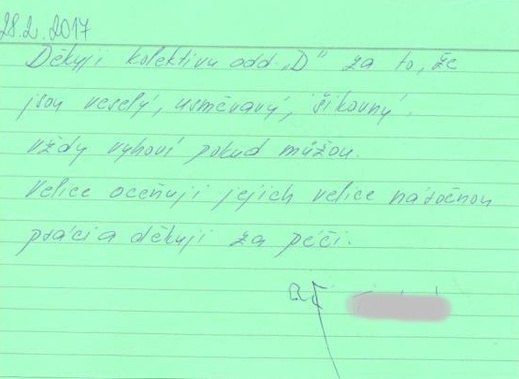 28.2.2017
Děkuji kolektivu odd. „D" za to, že
jsou veselý, usměvavý, šikovný.
vždy vyhoví pokud můžou.
Velice oceňuji jejich velice náročnou
práci a děkuji za péči.